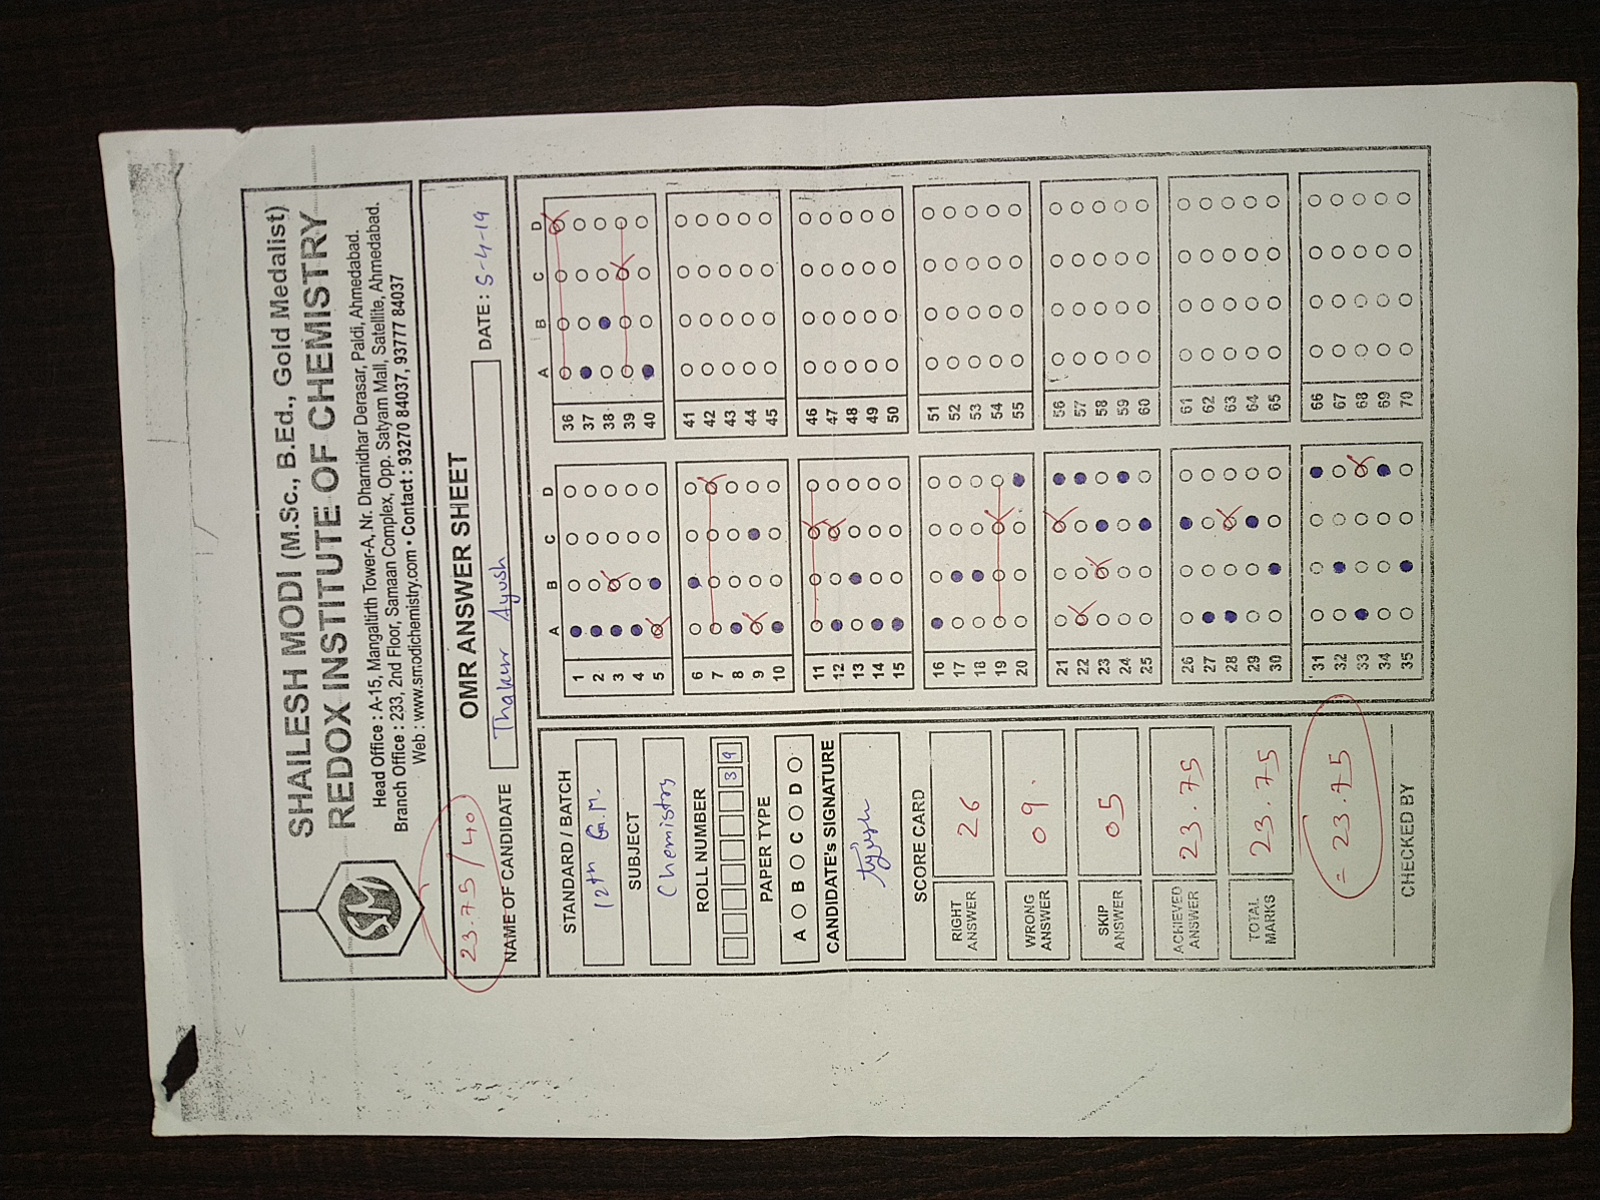 SHAILESH MODI (M.Sc., B.Ed., Gold Medalist)
REDOX INSTITUTE OF CHEMISTRY
Head Office : A-15, Mangaltirth Tower-A, Nr. Dharnidhar Derasar, Paldi, Ahmedabad.
Branch Office : 233, 2nd Floor, Samaan Complex, Opp. Satyam Mall, Satellite, Ahmedabad.
Web : www.smodichemistry.com • Contact : 93270 84037, 93777 84037
SM
23.75/40
OMR ANSWER SHEET
NAME OF CANDIDATE
Thakur Ayush
DATE : 5-4-19
STANDARD / BATCH
12th G.M.
SUBJECT
Chemistry
ROLL NUMBER
39
PAPER TYPE
A B C D
CANDIDATE's SIGNATURE
SCORE CARD
RIGHT ANSWER 26
WRONG ANSWER 09.
SKIP ANSWER 05
ACHIEVED ANSWER 23.75
TOTAL MARKS 23.75
= 23.75
CHECKED BY
A B C D
1
2
3
4
5
6
7
8
9
10
11
12
13
14
15
16
17
18
19
20
21
22
23
24
25
26
27
28
29
30
31
32
33
34
35
A B C D
36
37
38
39
40
41
42
43
44
45
46
47
48
49
50
51
52
53
54
55
56
57
58
59
60
61
62
63
64
65
66
67
68
69
70